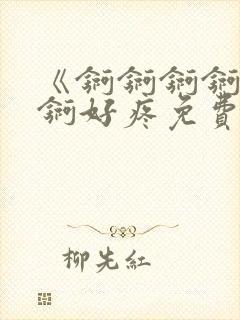 《锕锕锕锕
锕好疼免費
柳先紅